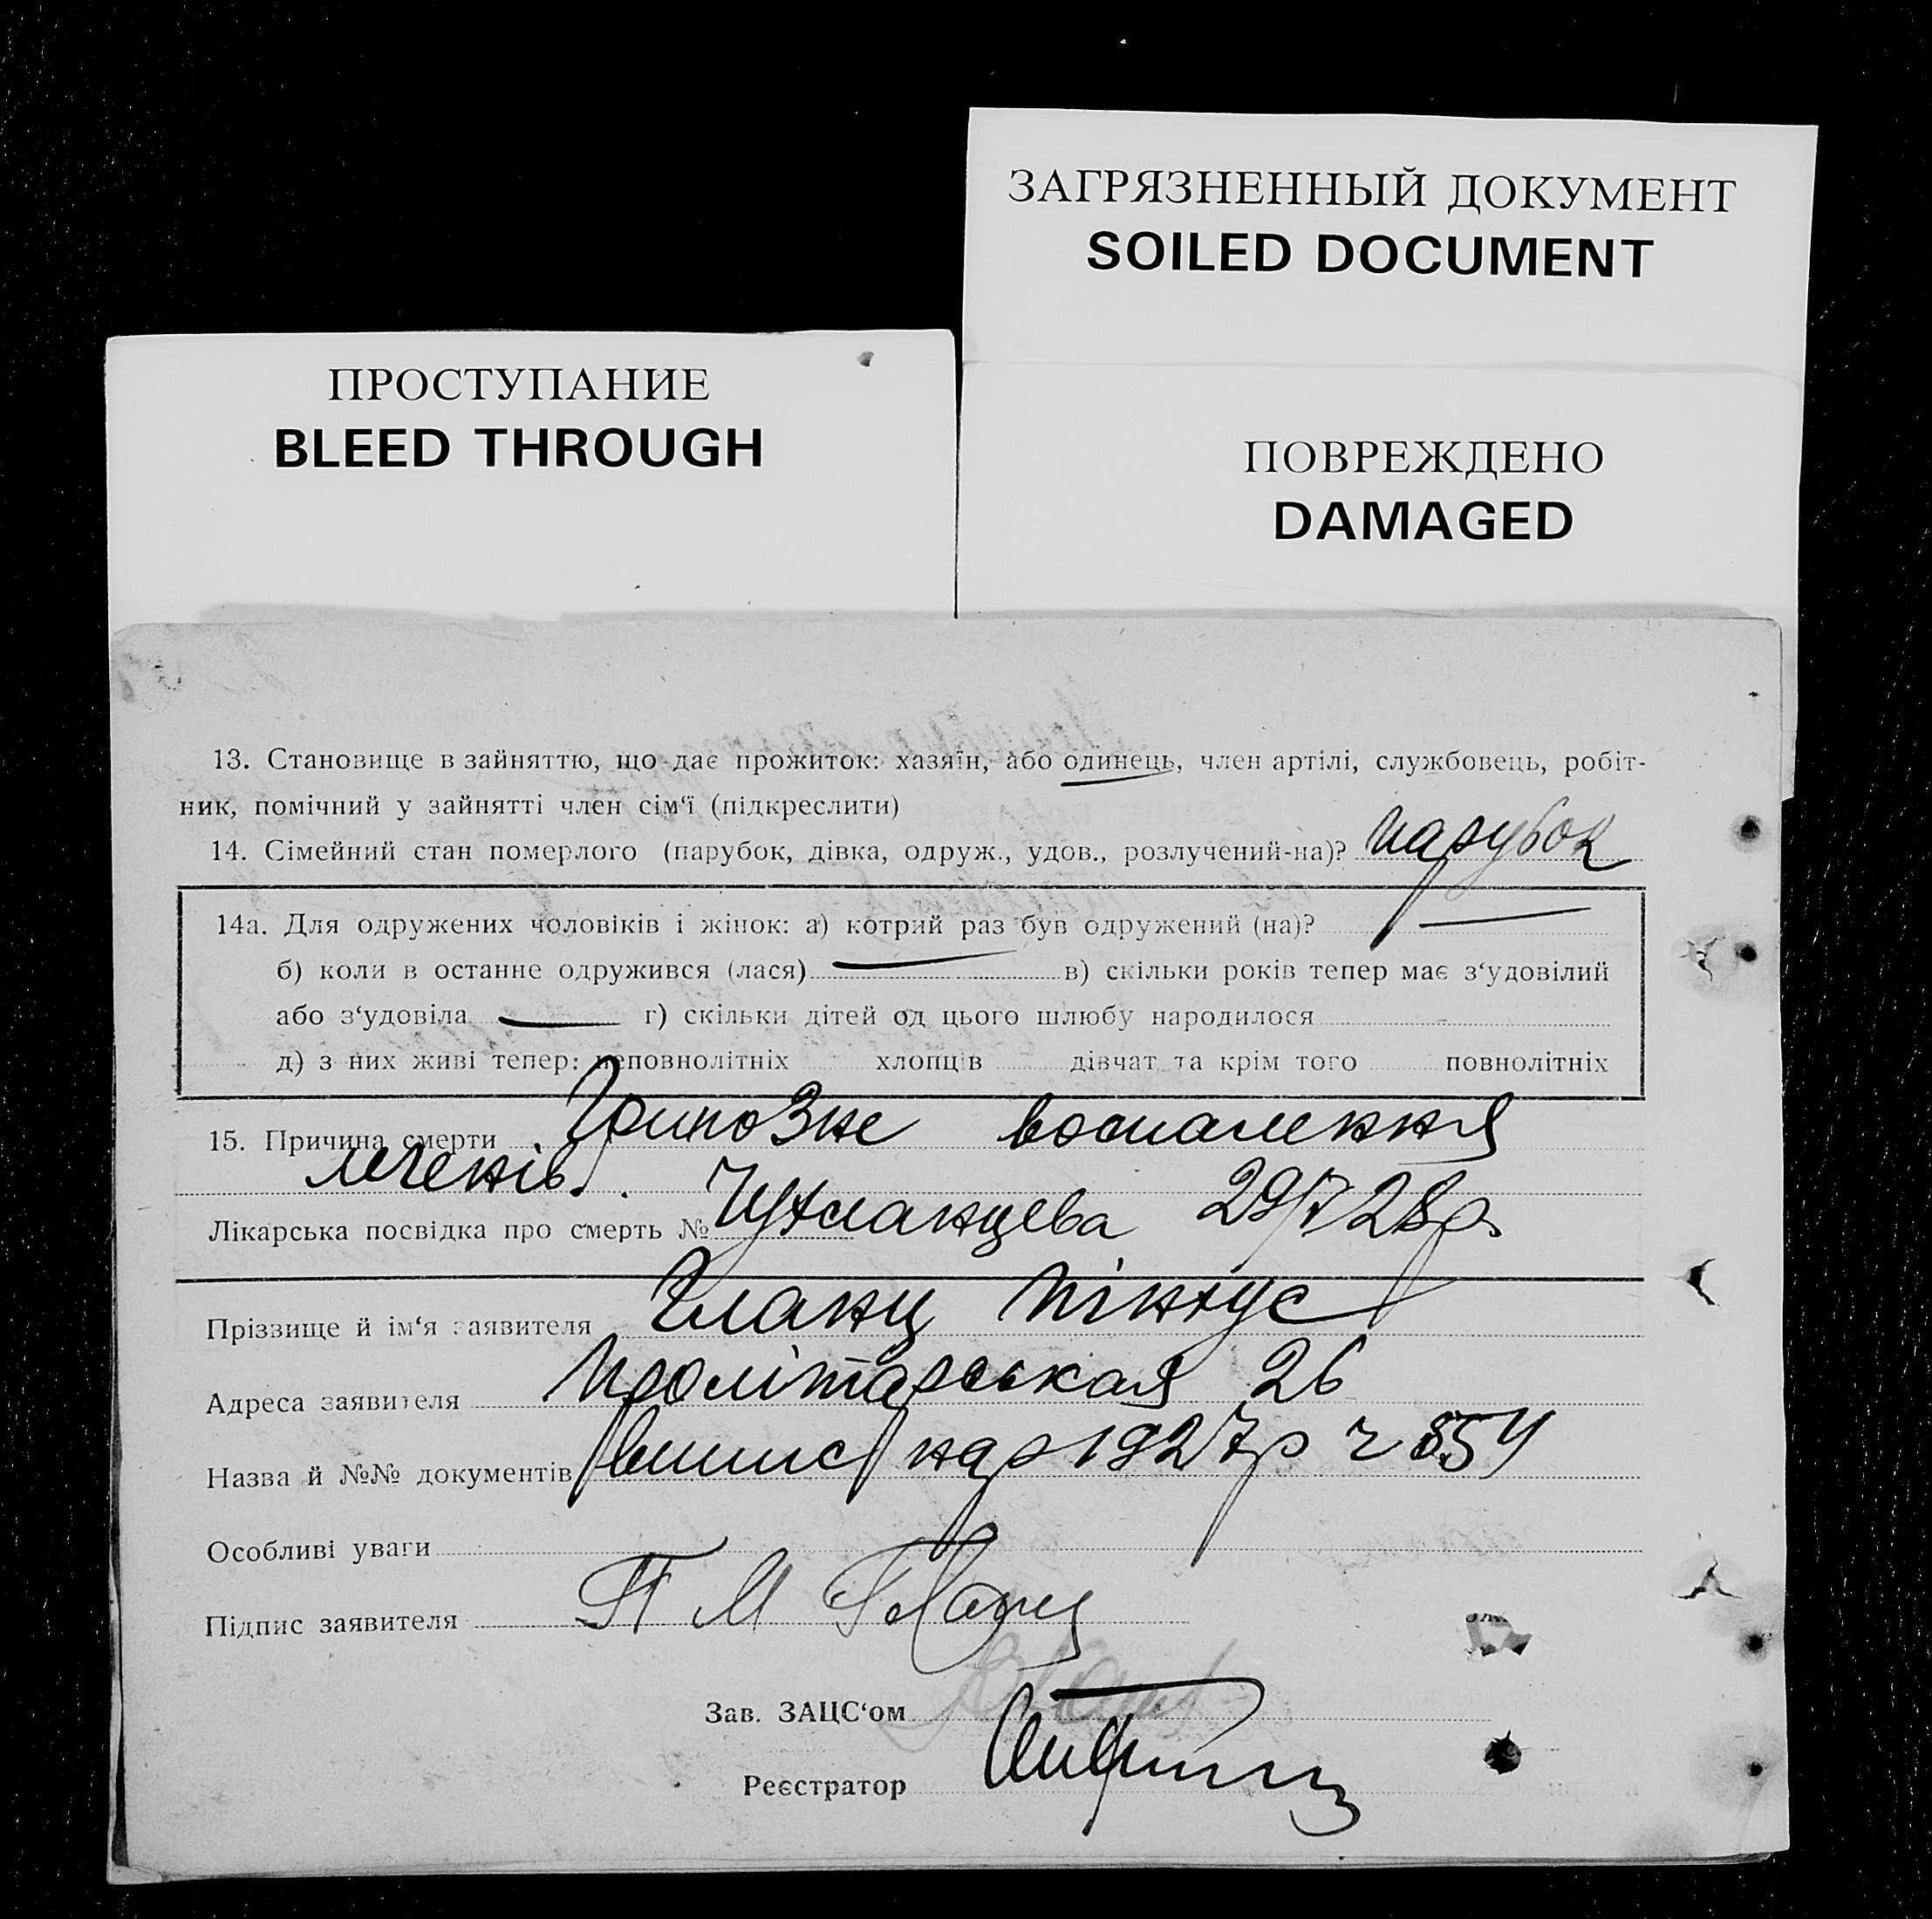 ЗАГРЯЗНЕННЫЙ ДОКУМЕНТ
SOILED DOCUMENT
ПРОСТУПАНИЕ
BLEED THROUGH
ПОВРЕЖДЕНО
DAMAGED
13. Становище в зайняттю, що дає прожиток: хазяїн, або одинець, член артілі, службовець, робіт-
ник, помічний у зайнятті член сім‘ї (підкреслити)
14. Сімейний стан померлого (парубок, дівка, одруж., удов., розлучений-на)? парубок
14а. Для одружених чоловіків і жінок: а) котрий раз був одружений (на)?
б) коли в останне одружився (лася) в) скільки років тепер має з‘удовілий
або з‘удовіла г) скільки дітей од цього шлюбу народилося
д) з них живі тепер: неповнолітніх хлопців дівчат та крім того повнолітніх
15. Причина смерти Грипозне воспалення
легенів.
Лікарська посвідка про смерть № 28р.
Пріззище й ім‘я заявителя Гланц Пінхус
Адреса заявителя Пролітарськая 26
Назва й №№ документів випис нар 1927р ч 854
Особливі уваги
Підпис заявителя П М Гланц
Зав. ЗАЦС‘ом
Реєстратор